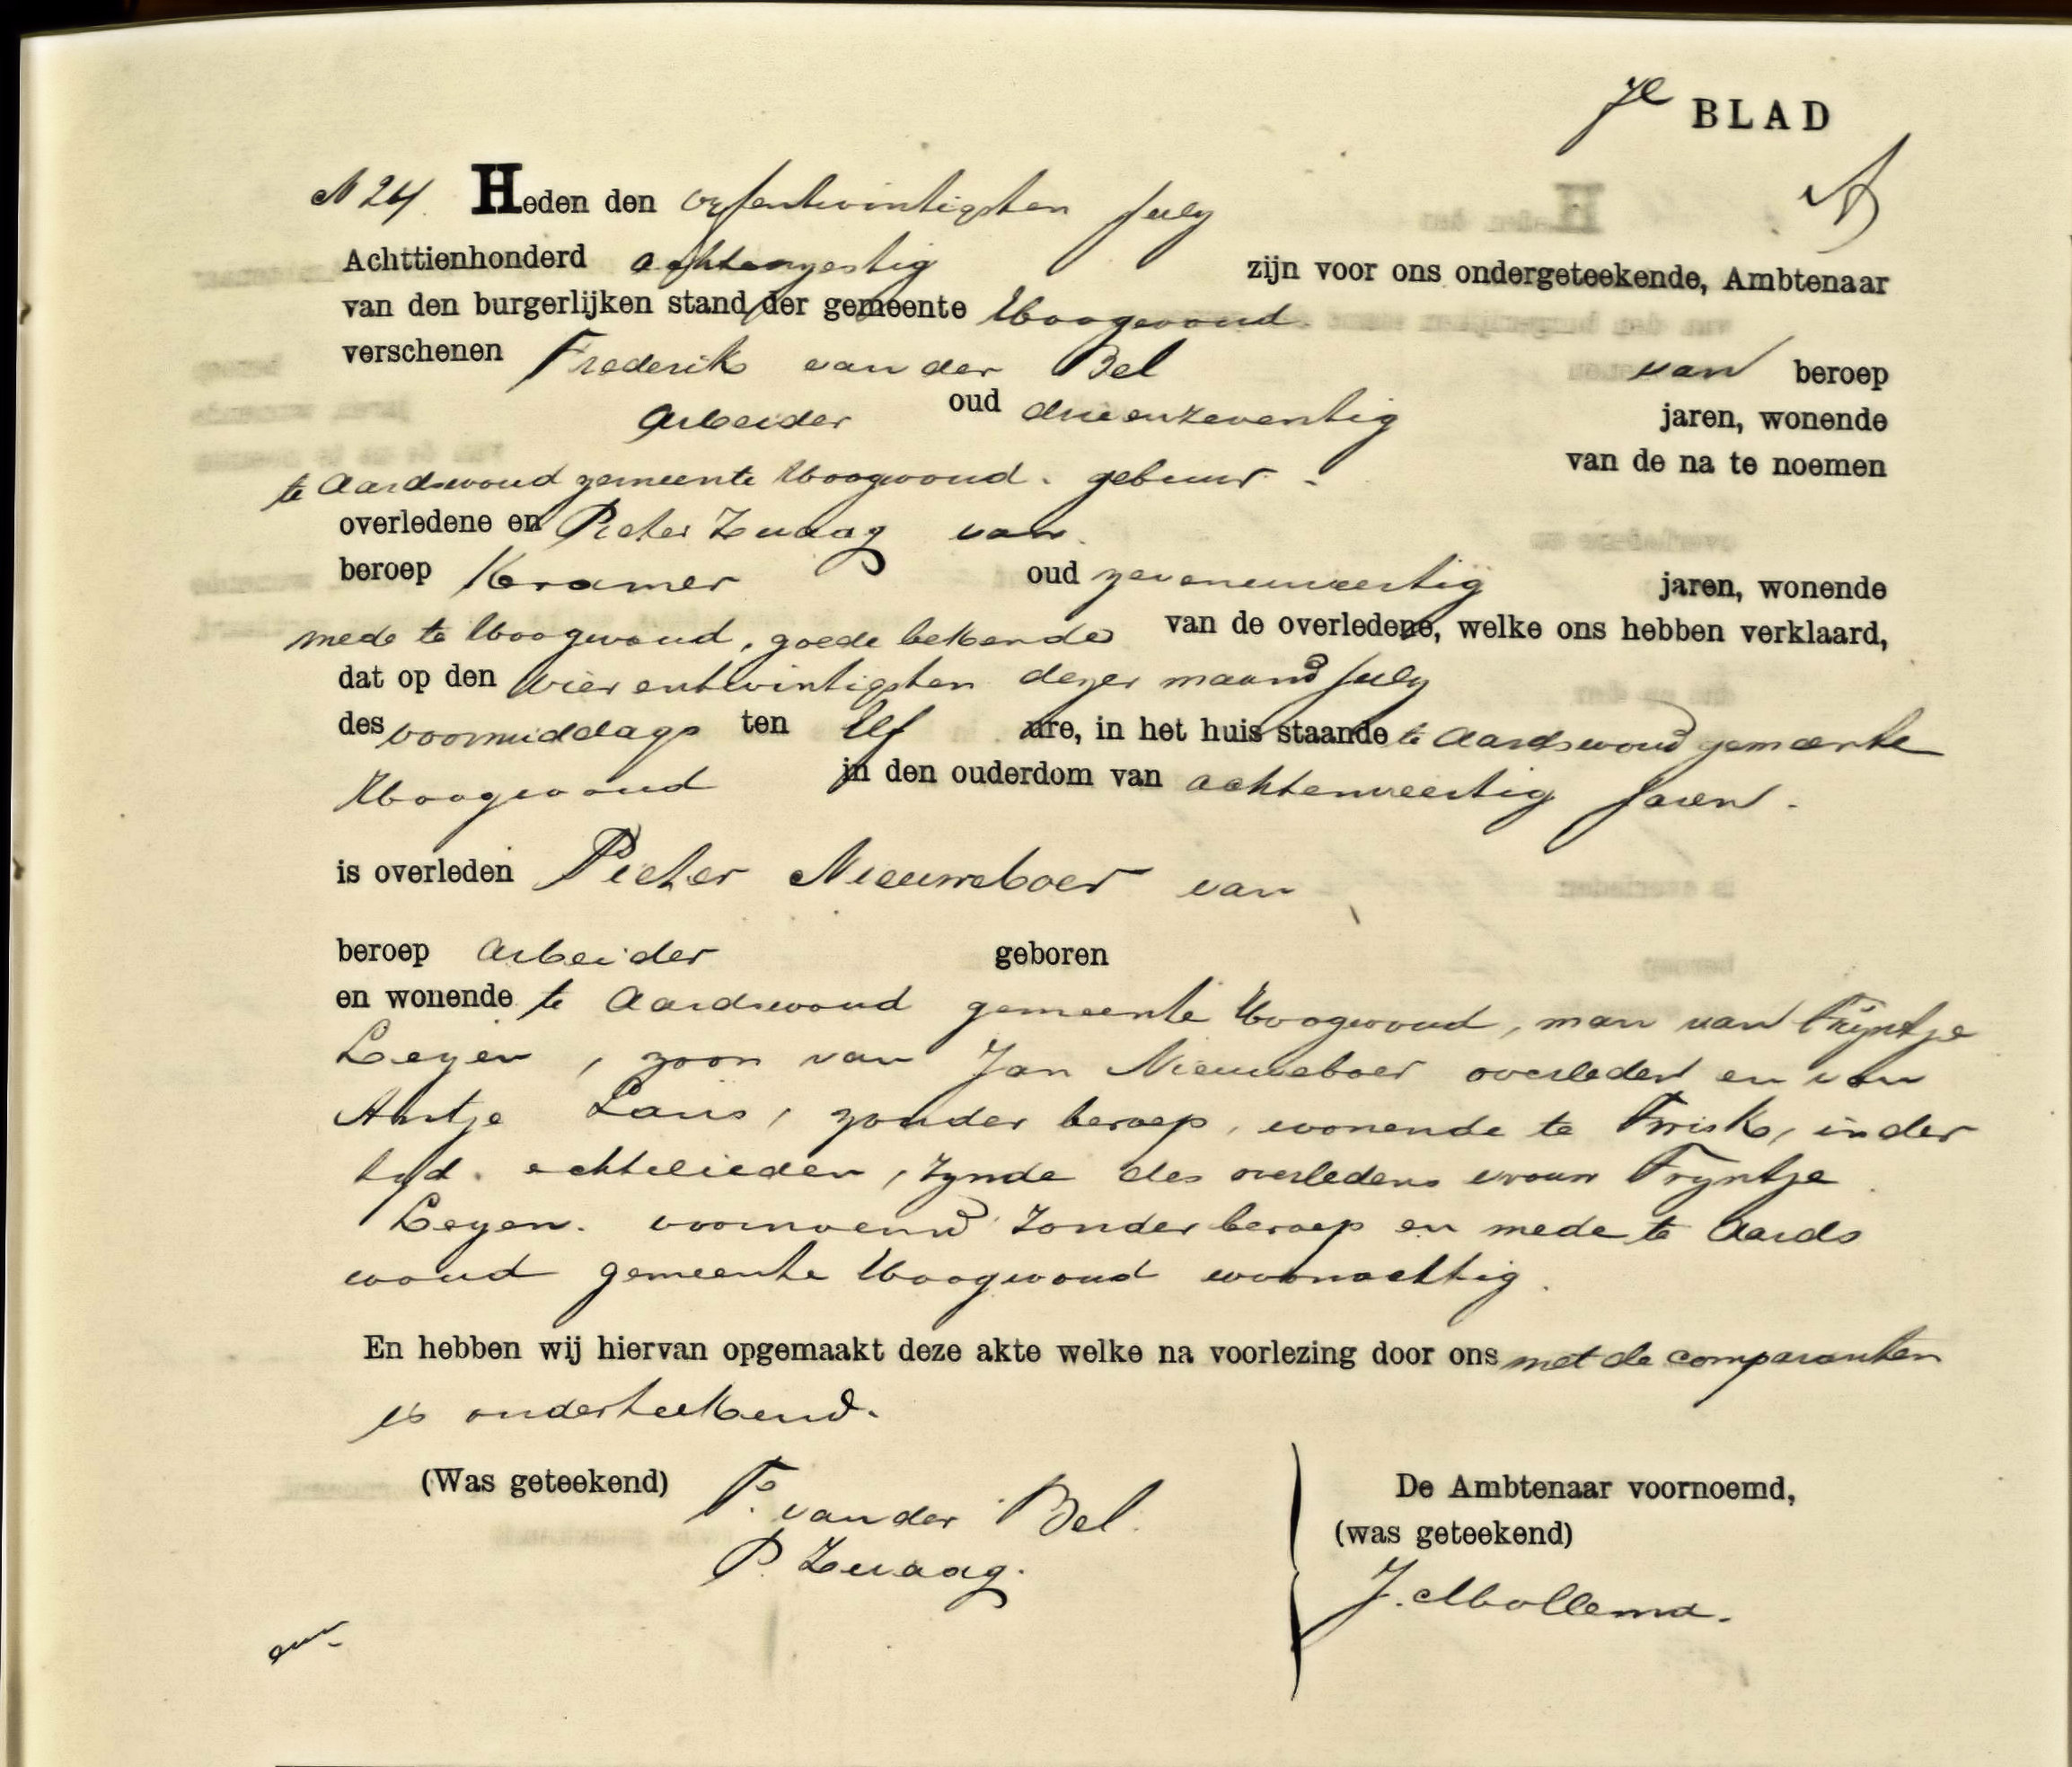 7e BLAD
A
N 24. Heden den vyfentwintigsten July
Achttienhonderd achtenzestig zijn voor ons ondergeteekende, Ambtenaar
van den burgerlijken stand der gemeente Hoogwoud.
verschenen Frederik van der Bel van beroep
Arbeider oud drieenzeventig jaren, wonende
te Aardswoud gemeente Hoogwoud. gebuur - van de na te noemen
overledene en Pieter Zwaag van
beroep Kramer oud zevenenveertig jaren, wonende
mede te Hoogwoud, goede bekende van de overledene, welke ons hebben verklaard,
dat op den vierentwintigsten dezer maand July
des voormiddags ten Elf ure, in het huis staande te Aardswoud gemeente
Hoogwoud in den ouderdom van achtenveertig Jaren.
is overleden Pieter Nieuweboer van
beroep Arbeider geboren
en wonende te Aardswoud gemeente Hoogwoud, man van Trijntje
Leyen, zoon van Jan Nieuweboer overleden en van
Antje Laris, zonder beroep, wonende te Twisk, in der
tyd. echtelieden, zynde des overledens vrouw Tryntje
Leyen. voornoemd zonder beroep en mede te Aards
woud gemeente Hoogwoud woonachtig.
En hebben wij hiervan opgemaakt deze akte welke na voorlezing door ons met de comparanten
is onderteekend.
(Was geteekend) F. van der Bel. De Ambtenaar voornoemd,
P. Zwaag. (was geteekend)
J. Mollema.